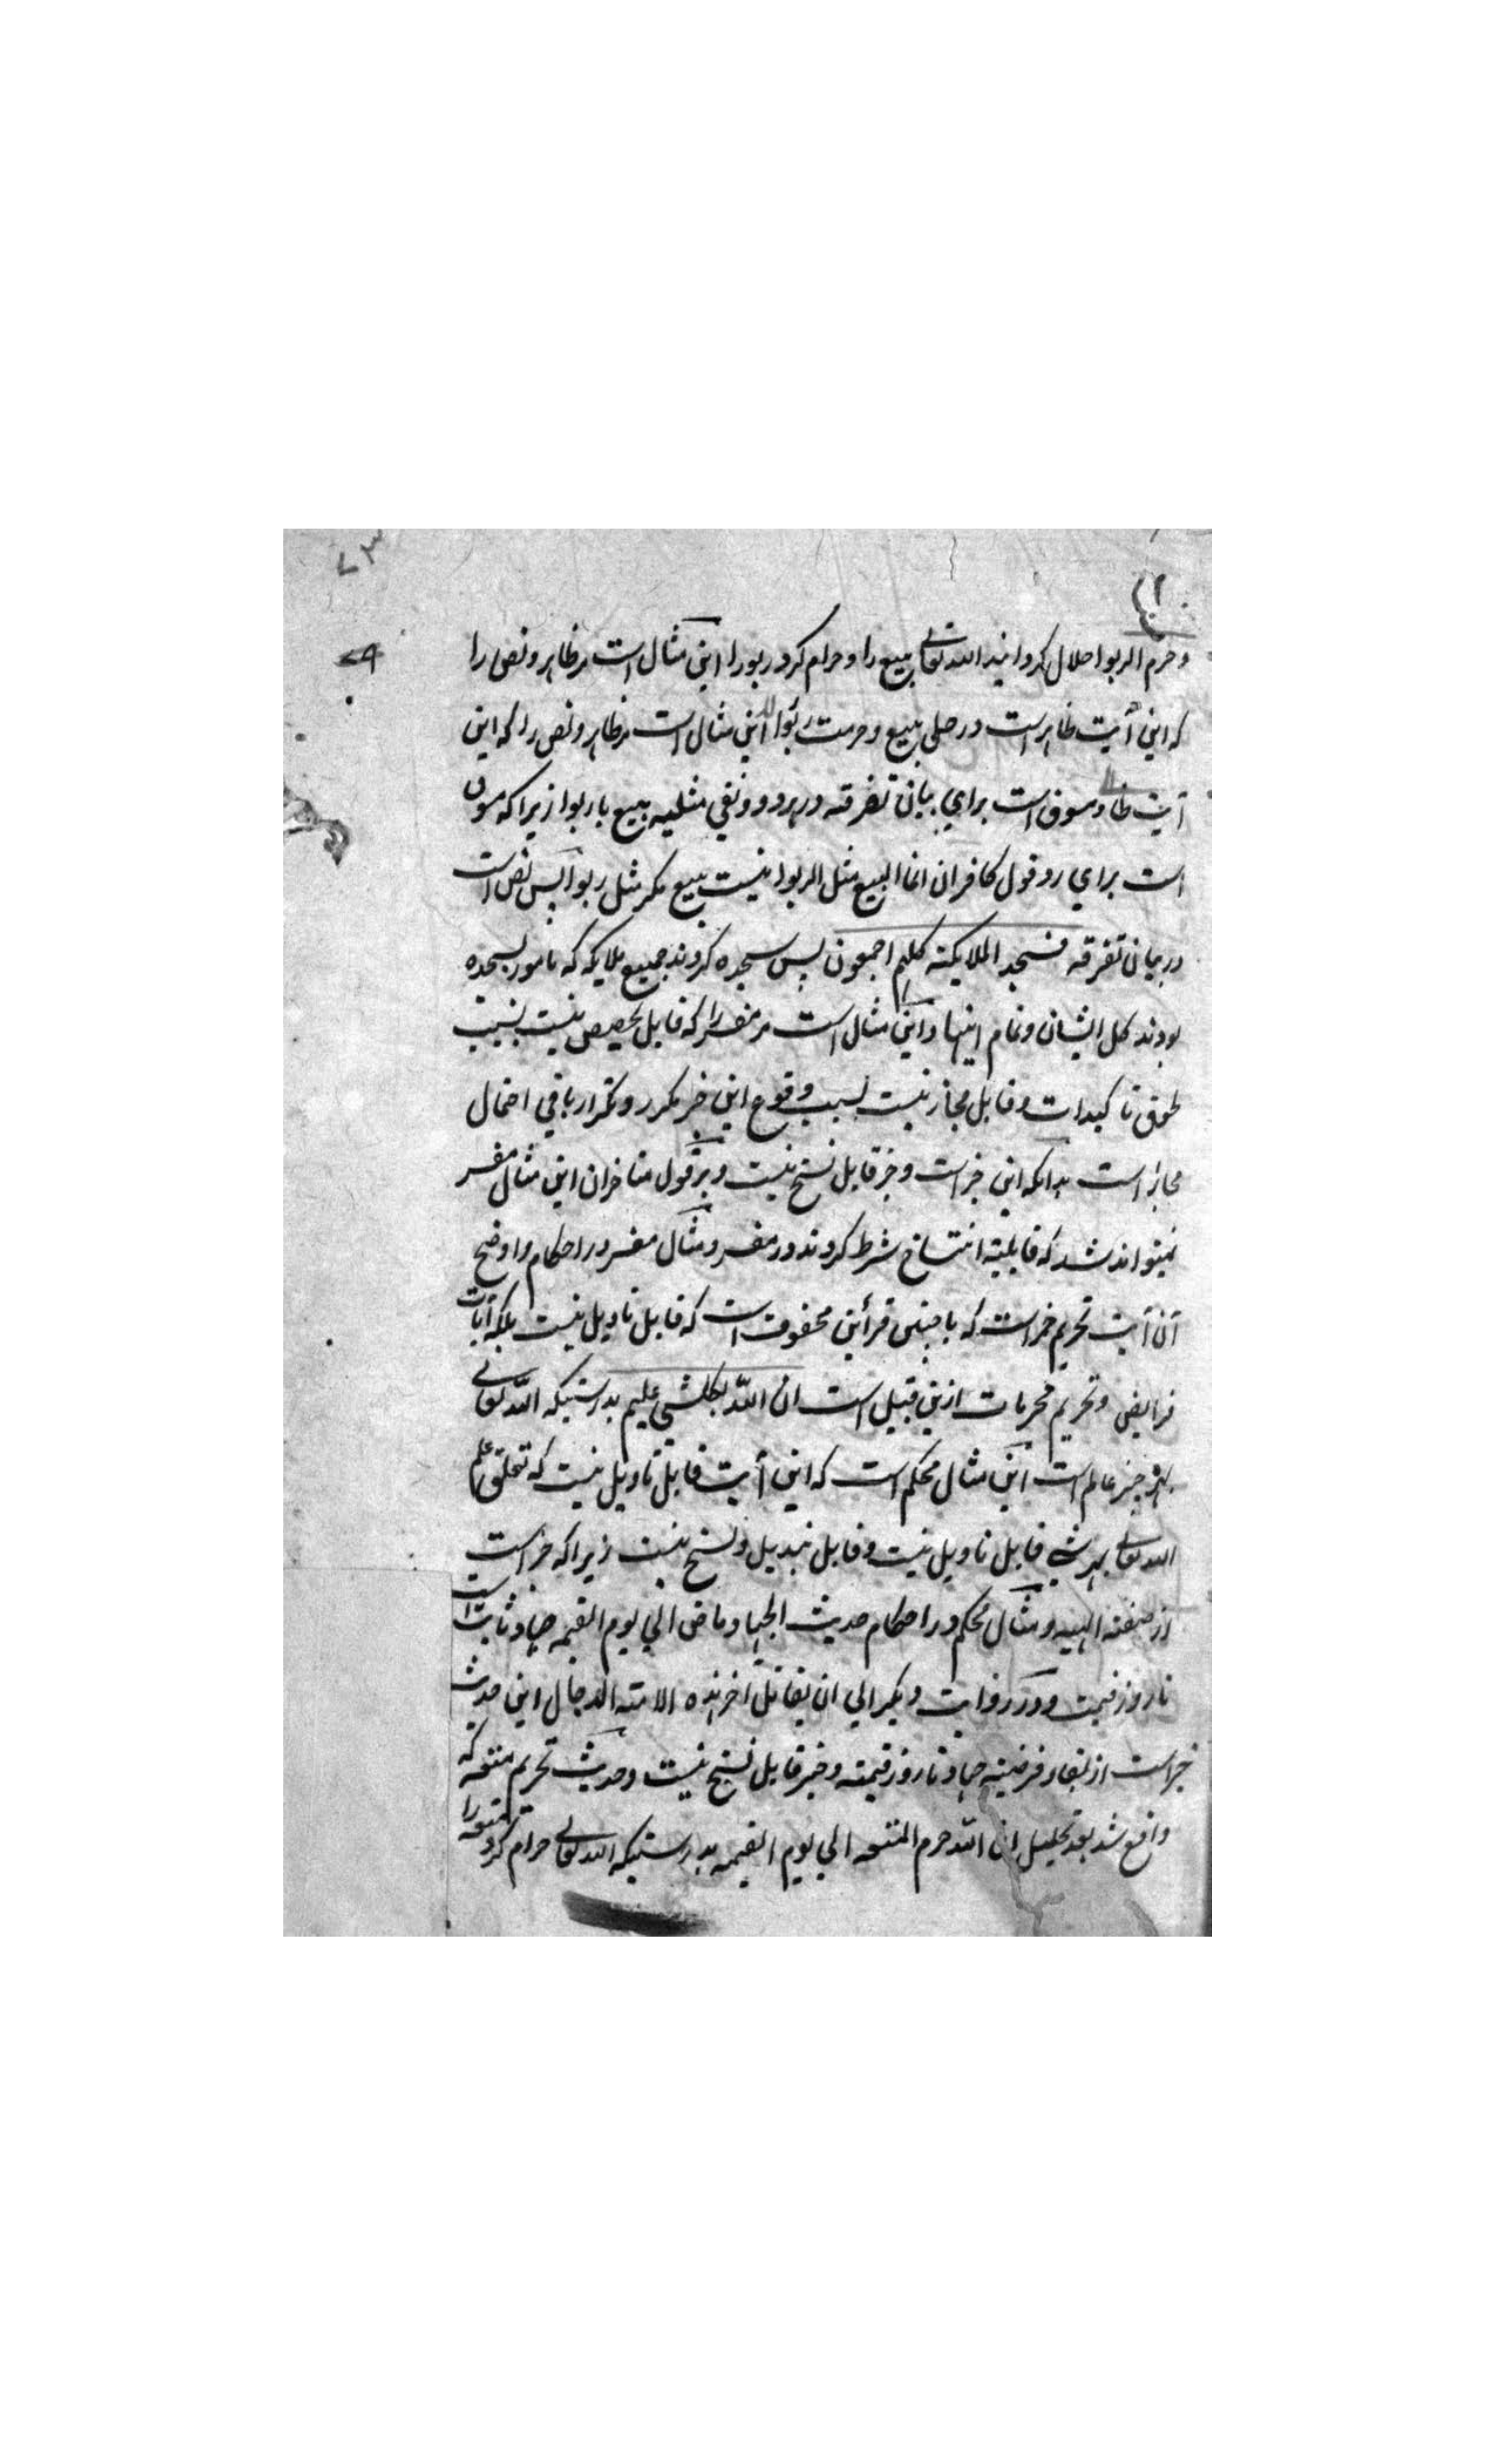 ۷۳
۷۹
وحرم الربوا حلال کردانید الله تعالی بیع را و حرام کرد ربورا این مثال است مر ظاهر و نص را
که این آیت ظاهر است در حلی بیع و حرمت ربوا این مثال است مر ظاهر و نص را که این
آیت مسوق است برای بیان تفرقه در هر دو و نفی مثلیه بیع با ربوا زیرا که مسوق
است برای رد قول کافران انما البیع مثل الربوا نیست بیع مکر مثل ربوا پس نص است
در بیان تفرقه فسجد الملایکته کلهم اجمعون پس سجده کردند جمیع ملایکه که مامور بسجده
بودند کل ایشان و تمام اینها و این مثال است مر مفسر را که قابل تخصیص نیست بسبب
لحوق تاکیدات و قابل مجاز نیست بسبب وقوع این خبر مکرر و تکرار باقی احتمال
مجاز است بدانکه این خبر است و خبر قابل نسخ نیست و بر قول متاخران این مثال مفسر
نمیتواند شد که قابلیته انتساخ شرط کردند در مفسر و مثال مفسر در احکام واوضح
آن آیت تحریم خمر است که با چنین قرأین محفوفت است که قابل تاویل نیست بلکه آیات
فرایض و تحریم محرمات ازین قبیل است ان الله بکلشی علیم بدرستیکه الله تعالی
بهر چیز عالم است این مثال محکم است که این آیت قابل تاویل نیست که تعلق علم
الله تعالی بهر شی قابل تاویل نیست و قابل تبدیل و نسخ نیست زیرا که خبر است
از صفته الهیه و مثال محکم در احکام حدیث الجهاد ماضی الی یوم القیمه جهاد ثابت است
تا روز قیمت و در روایت دیکر الی ان یقاتل آخر هذه الامته الدجال این حدیث
خبر است از بقاء فرضیته جهاد تا روز قیمته و خبر قابل نسخ نیست و حدیث تحریم متعه که
واقع شد بعد تحلیل ان الله حرم المتعه الی یوم القیمه بدرستیکه الله تعالی حرام کرد متعه را